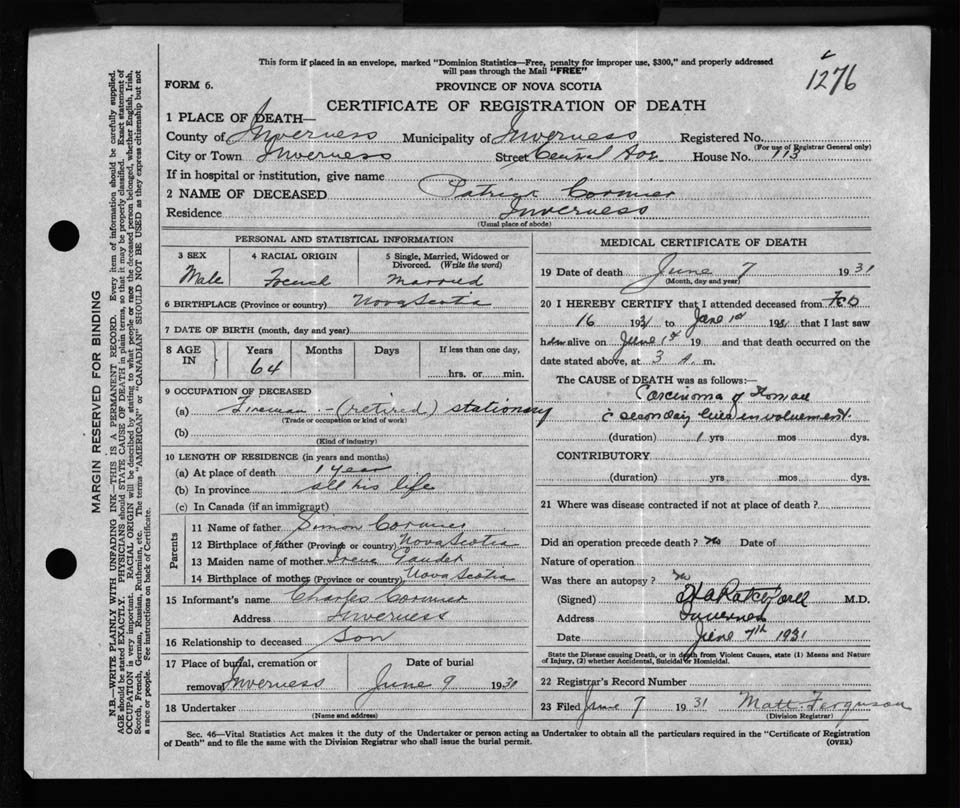 This form if placed in an envelope, marked "Dominion Statistics—Free, penalty for improper use, $300," and properly addressed
will pass through the Mail "FREE"
1276
FORM 6.
PROVINCE OF NOVA SCOTIA
CERTIFICATE OF REGISTRATION OF DEATH
1 PLACE OF DEATH—
County of Inverness Municipality of Inverness Registered No.
(For use of Registrar General only)
City or Town Inverness Street Central Ave House No. 113
If in hospital or institution, give name
2 NAME OF DECEASED Patrick Cormier
Residence Inverness
(Usual place of abode)
PERSONAL AND STATISTICAL INFORMATION
3 SEX 4 RACIAL ORIGIN 5 Single, Married, Widowed or
Divorced. (Write the word)
Male French Married
6 BIRTHPLACE (Province or country) Nova Scotia
7 DATE OF BIRTH (month, day and year)
8 AGE IN Years Months Days If less than one day,
64 hrs. or min.
9 OCCUPATION OF DECEASED
(a) Fireman - (retired) stationary
(Trade or occupation or kind of work)
(b)
(Kind of industry)
10 LENGTH OF RESIDENCE (in years and months)
(a) At place of death 1 year
(b) In province all his life
(c) In Canada (if an immigrant)
Parents
11 Name of father Simon Cormier
12 Birthplace of father (Province or country) Nova Scotia
13 Maiden name of mother
14 Birthplace of mother (Province or country) Nova Scotia
15 Informant's name Charles Cormier
Address Inverness
16 Relationship to deceased Son
17 Place of burial, cremation or Date of burial
removal Inverness June 9 1931
18 Undertaker
(Name and address)
MEDICAL CERTIFICATE OF DEATH
19 Date of death June 7 1931
(Month, day and year)
20 I HEREBY CERTIFY that I attended deceased from Feb
16 1931 to June 1st 1931 that I last saw
him alive on June 1st 19 and that death occurred on the
date stated above, at 3 a. m.
The CAUSE of DEATH was as follows:—
Carcinoma of Stomach
c secondary liver involvement.
(duration) 1 yrs mos dys.
CONTRIBUTORY
(duration) yrs mos dys.
21 Where was disease contracted if not at place of death?
Did an operation precede death? No Date of
Nature of operation
Was there an autopsy? No
(Signed) M.D.
Address Inverness
Date June 7th 1931
State the Disease causing Death, or in death from Violent Causes, state (1) Means and Nature
of Injury, (2) whether Accidental, Suicidal or Homicidal.
22 Registrar's Record Number
23 Filed June 7 1931 Matt. Ferguson
(Division Registrar)
Sec. 46—Vital Statistics Act makes it the duty of the Undertaker or person acting as Undertaker to obtain all the particulars required in the "Certificate of Registration
of Death" and to file the same with the Division Registrar who shall issue the burial permit. (OVER)
MARGIN RESERVED FOR BINDING
N.B.—WRITE PLAINLY WITH UNFADING INK—THIS IS A PERMANENT RECORD. Every item of information should be carefully supplied.
AGE should be stated EXACTLY. PHYSICIANS should STATE CAUSE OF DEATH in plain terms, so that it may be properly classified. Exact statement of
OCCUPATION is very important. RACIAL ORIGIN will be described by stating to what people or race the deceased person belonged, whether English, Irish,
Scotch, French, German, Russian, Ruthenian, etc. The terms "AMERICAN" or "CANADIAN" SHOULD NOT BE USED as they express citizenship but not
a race or people. Fee instructions on back of Certificate.